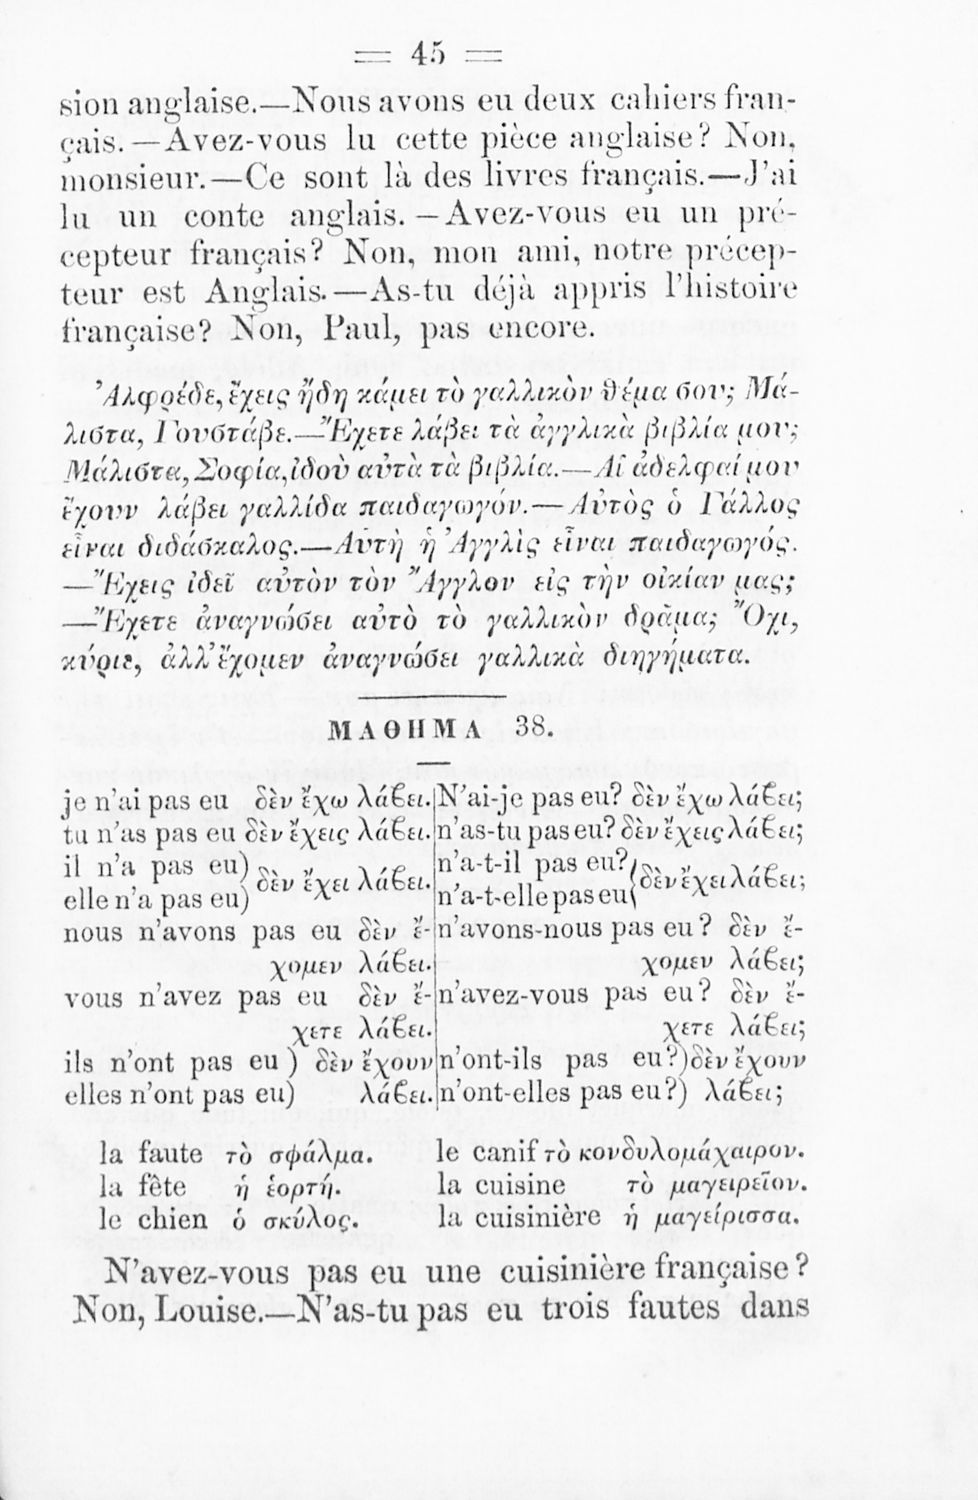 = 45 =
sion anglaise.—Nous avons eu deux cahiers fran-
çais.—Avez-vous lu cette pièce anglaise? Non,
monsieur.—Ce sont là des livres français.—J'ai
lu un conte anglais.—Avez-vous eu un pré-
cepteur français? Non, mon ami, notre précep-
teur est Anglais.—As-tu déjà appris l'histoire
française? Non, Paul, pas encore.
Ἀλφρέδε, ἔχεις ἤδη κάμει τὸ γαλλικὸν θέμα σου; Μά-
λιστα, Γουστάβε.—Ἔχετε λάβει τὰ ἀγγλικὰ βιβλία μου;
Μάλιστα, Σοφία, ἰδοὺ αὐτὰ τὰ βιβλία.—Αἱ ἀδελφαί μου
ἔχουν λάβει γαλλίδα παιδαγωγόν.—Αὐτὸς ὁ Γάλλος
εἶναι διδάσκαλος.—Αυτὴ ἡ Ἀγγλὶς εἶναι παιδαγωγός.
—Ἔχεις ἰδεῖ αὐτὸν τὸν Ἄγγλον εἰς τὴν οἰκίαν μας;
—Ἔχετε ἀναγνώσει αὐτὸ τὸ γαλλικὸν δρᾶμα; Ὄχι,
κύριε, ἀλλ' ἔχομεν ἀναγνώσει γαλλικὰ διηγήματα.
ΜΑΘΗΜΑ 38.
je n'ai pas eu δὲν ἔχω λάβει. N'ai-je pas eu? δὲν ἔχω λάβει;
tu n'as pas eu δὲν ἔχεις λάβει. n'as-tu pas eu? δὲν ἔχεις λάβει;
il n'a pas eu) δὲν ἔχει λάβει. n'a-t-il pas eu? δὲν ἔχει λάβει;
elle n'a pas eu) n'a-t-elle pas eu
nous n'avons pas eu δὲν ἔ- n'avons-nous pas eu? δὲν ἔ-
χομεν λάβει. χομεν λάβει;
vous n'avez pas eu δὲν ἔ- n'avez-vous pas eu? δὲν ἔ-
χετε λάβει. χετε λάβει;
ils n'ont pas eu ) δὲν ἔχουν n'ont-ils pas eu?) δὲν ἔχουν
elles n'ont pas eu) λάβει. n'ont-elles pas eu?) λάβει;
la faute τὸ σφάλμα. le canif τὸ κονδυλομάχαιρον.
la fête ἡ ἑορτή. la cuisine τὸ μαγειρεῖον.
le chien ὁ σκύλος. la cuisinière ἡ μαγείρισσα.
N'avez-vous pas eu une cuisinière française?
Non, Louise.—N'as-tu pas eu trois fautes dans